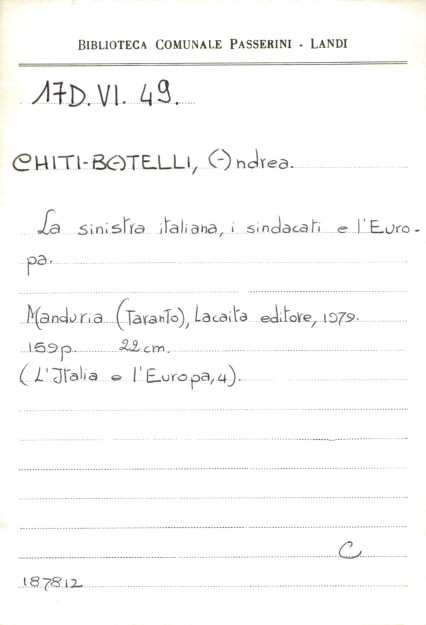 BIBLIOTECA COMUNALE PASSERINI - LANDI
17D. VI. 49.
CHITI-BATELLI, Andrea.
La sinistra italiana, i sindacati e l'Euro-
pa.
Manduria (Taranto), Lacaita editore, 1979.
159p. 22cm.
(L'Italia e l'Europa, 4).
C
187812